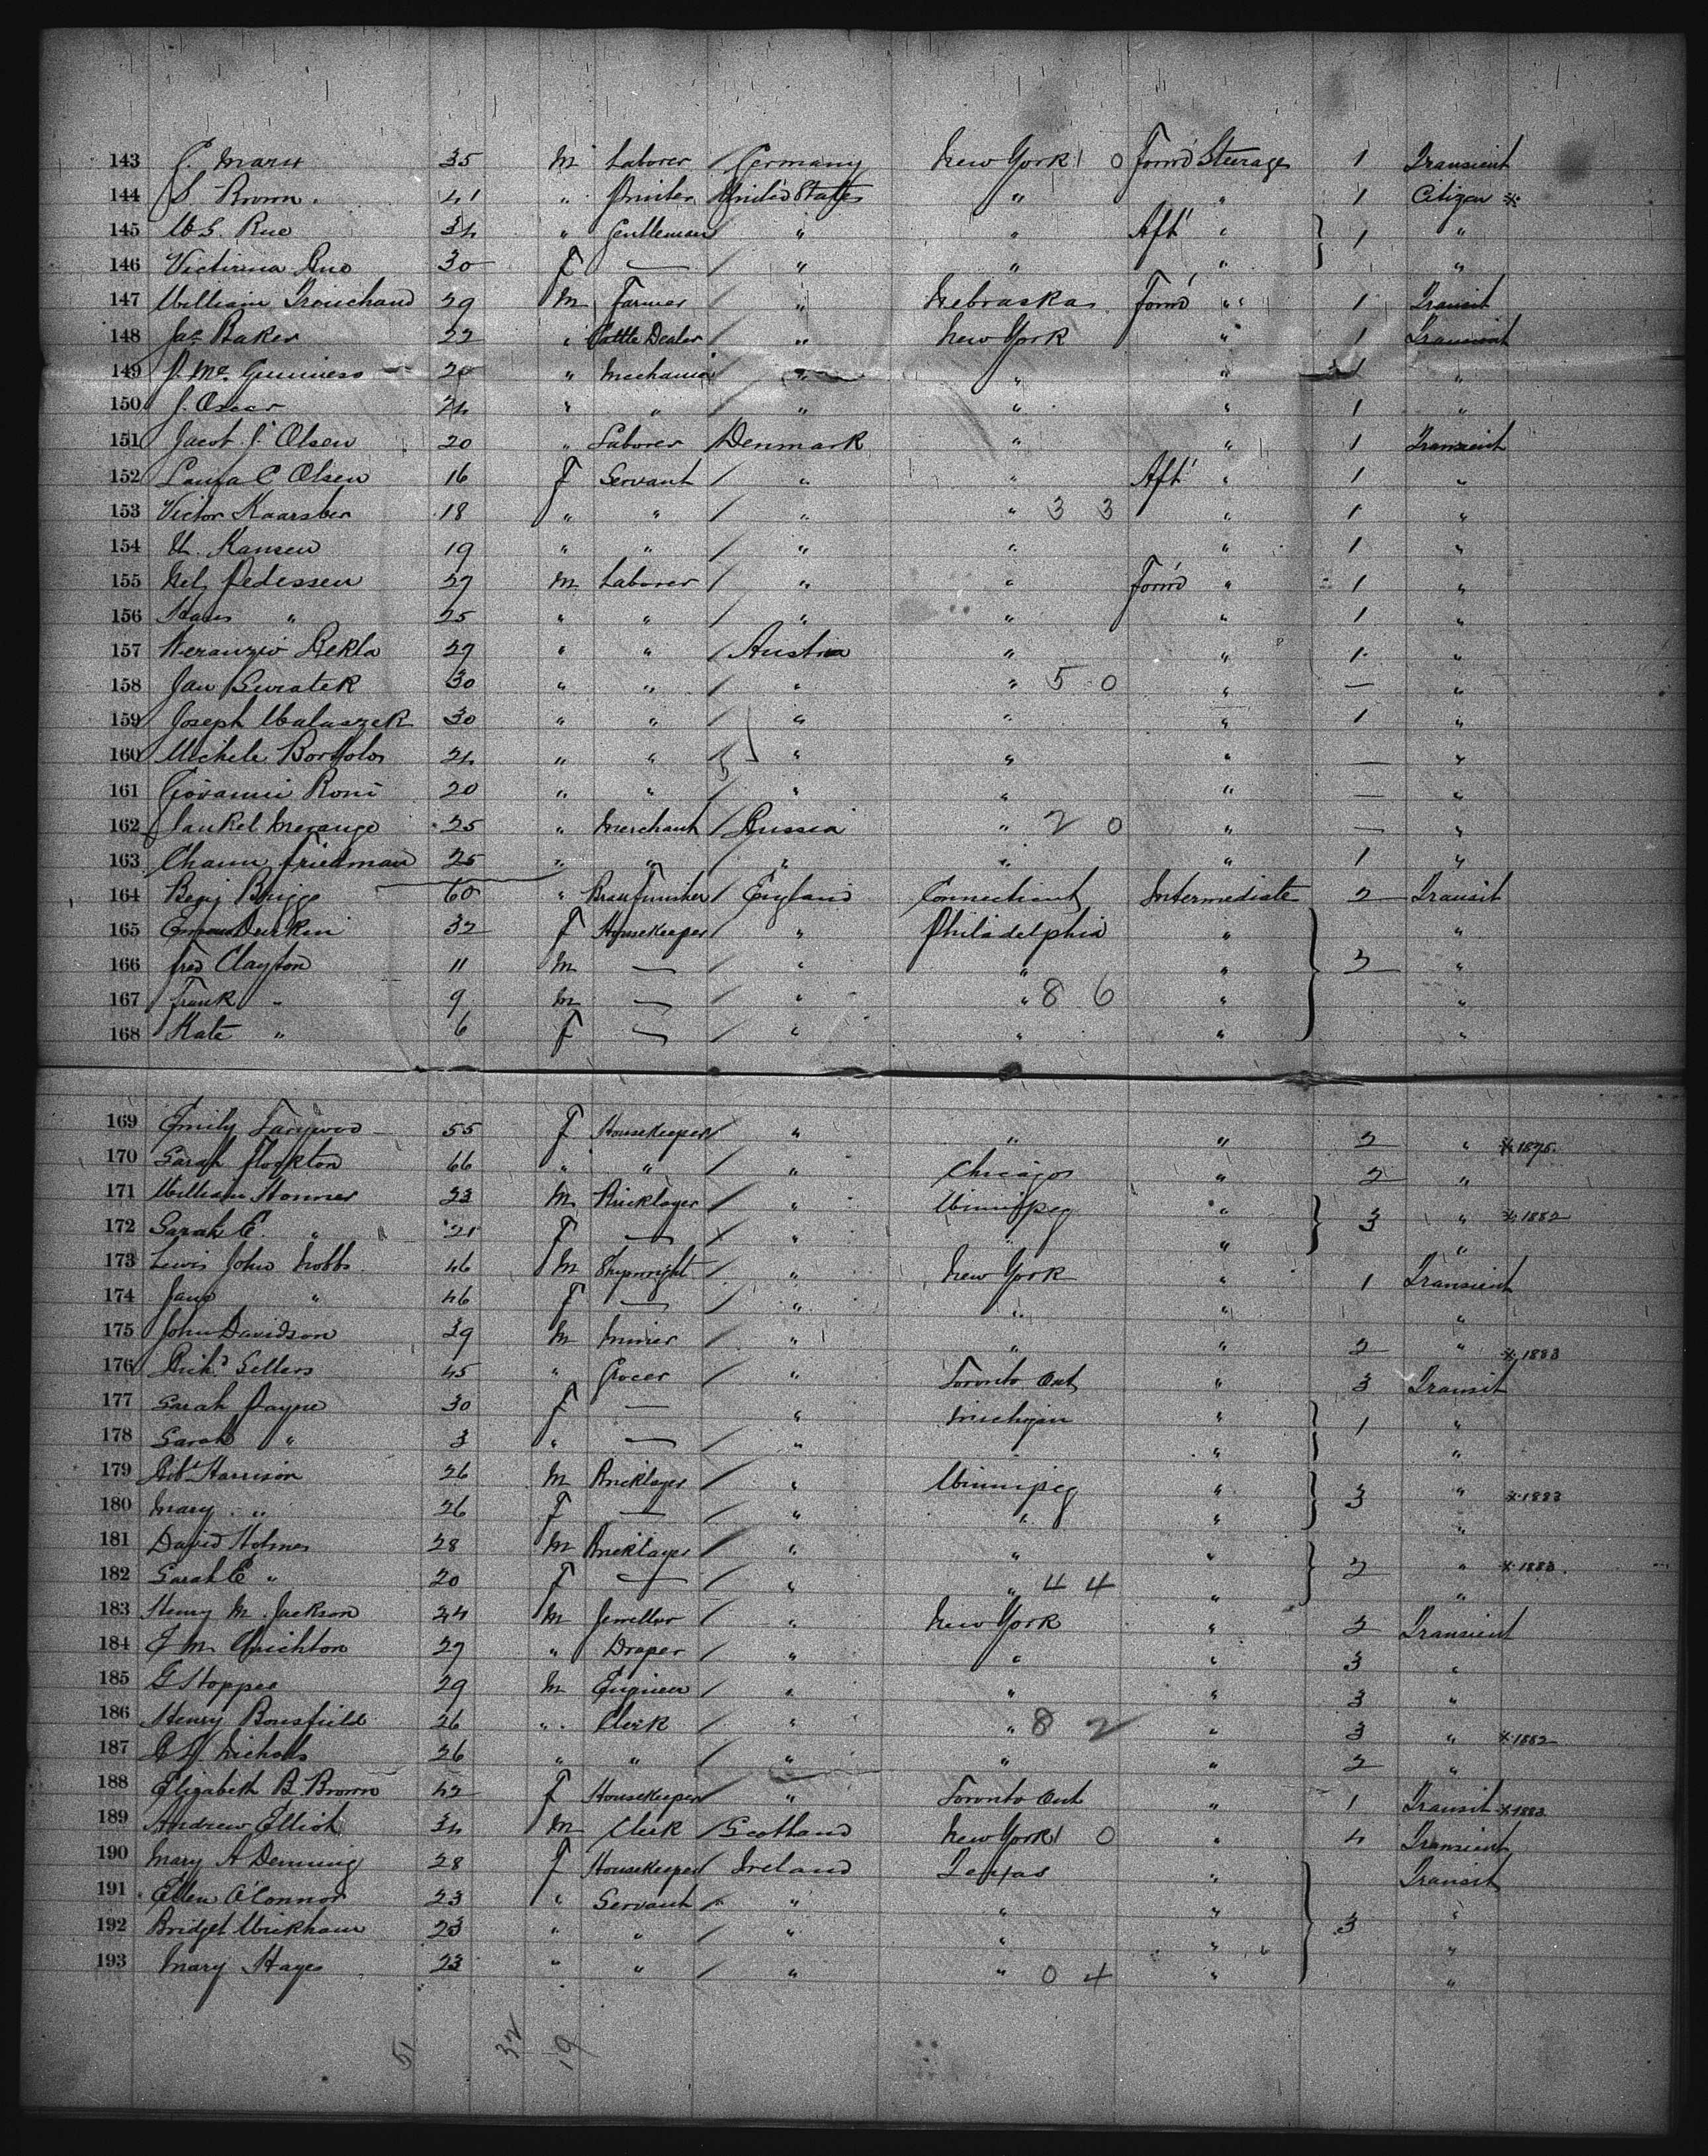 143 35 m Laborer / Germany New York 1 0 Forw'd Steerage 1 Transient
144 S. Brown. 41 " United States " " 1 Citizen *
145 W. S. Rue 34 " Gentleman " " Aft " 1 "
146 Rue 30 F — / " " " "
147 William 29 M Farmer / " Nebraska Forw'd " 1 Transit
148 Jas Baker 22 " Cattle Dealer / " New York " 1 Transient
149 J. Mc Guiness 20 " Mechanic " " " 1 "
150 J. Oscar 24 " " / " " " 1 "
151 Jacob J. Olsen 20 " Laborer Denmark " " 1 Transient
152 Laura C Olsen 16 F Servant / " " Aft " 1 "
153 Victor 18 " " / " " 3 3 " 1 "
154 19 " " / " " " 1 "
155 27 M Laborer / " " Forw'd " 1 "
156 Hans " 25 " " / " " " 1 "
157 29 " " / Austria " " 1 "
158 Jan Swiatek 30 " " / " " 5 0 " — "
159 Joseph Walaszek 30 " " / " " " 1 "
160 Michele 24 " " " " " — "
161 Giovanni Roni 20 " " / " " " — "
162 25 " Merchant / Russia " 2 0 " — "
163 Friedman 25 " " / " " " 1 "
164 Benj Briggs 60 " England Connecticut Intermediate 2 Transit
165 Emma Durkin 32 F Housekeeper / " Philadelphia " "
166 Fred Clayton 11 M — / " " " 3 "
167 Frank " 9 M — / " " 8 6 " "
168 Kate " 6 F — / " " " "
169 Emily 55 F Housekeeper " " " 2 " * 1875.
170 Sarah Flockton 66 " " / " Chicago " 2 "
171 William Honner 23 M Bricklayer / " Winnipeg " 3 " * 1882
172 Sarah E. " 21 F — " " " "
173 Lewis John 46 M Shipwright " New York " 1 Transient
174 Jane " 46 F — / " " " "
175 John Davidson 39 M Miner / " " " 2 " * 1883
176 Rich'd Sellers 45 " Grocer / " Toronto Ont " 3 Transit
177 Sarah Payne 30 F — " Michigan " 1 "
178 Sarah " 3 " — / " " "
179 Rob't Harrison 26 M Bricklayer / " Winnipeg " 3 " * 1883
180 Mary " 26 F — / " " " "
181 David Holmes 28 M Bricklayer / " " " 2 " * 1883.
182 Sarah E " 20 F — / " " 4 4 " "
183 Henry M. Jackson 24 M Jeweller / " New York " 2 Transient
184 27 " Draper / " " " 3 "
185 G 29 M Engineer / " " " 3 "
186 Henry Bousfield 26 " Clerk / " " 8 2 " 3 " * 1882
187 Nicholls 26 " " / " " " 2 "
188 Elizabeth B. Brown 42 F Housekeeper " Toronto Ont " 1 Transit * 1883
189 Andrew Elliot 34 M Clerk / Scotland New York 1 0 " 4 Transient
190 Mary A Denning 28 F Housekeeper / Ireland Texas " Transit
191 Ellen O'Connor 23 " Servant / " " " "
192 Bridget Wickham 23 " " / " " " 3 "
193 Mary Hayes 23 " " / " " 0 4 " "
51 32 19